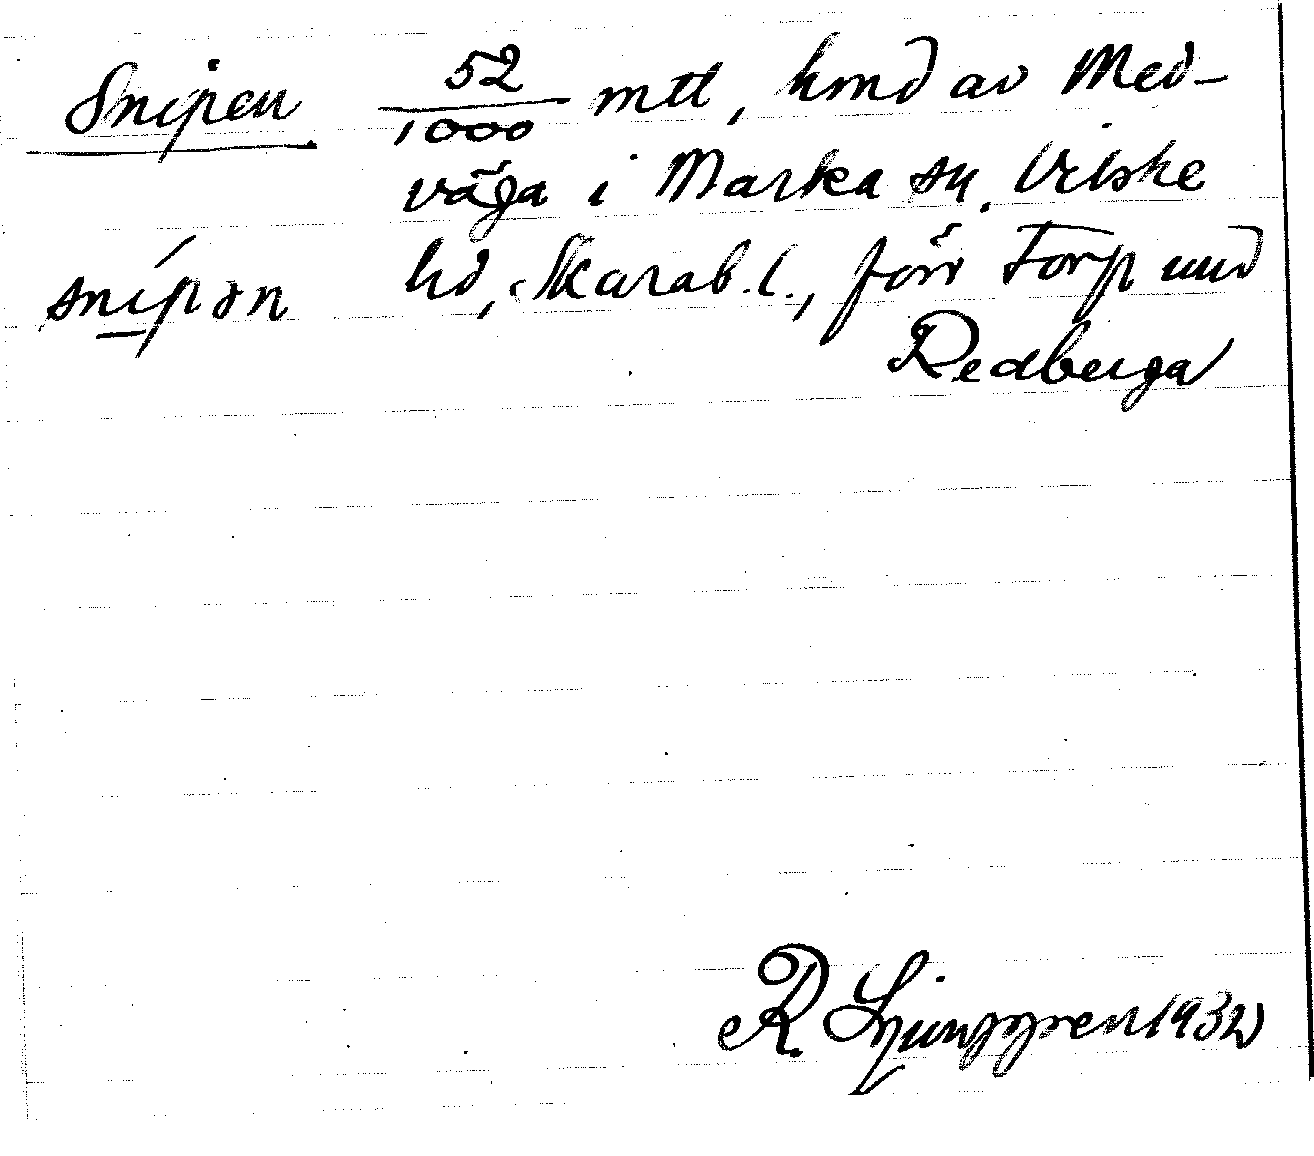 Snipen 52/1000 mtl, hmd av Med-
väga i Marka sn. Vilske
snípən hd, Skarab. l., förr Torp und
Redberga
R. Ljunggren 1932